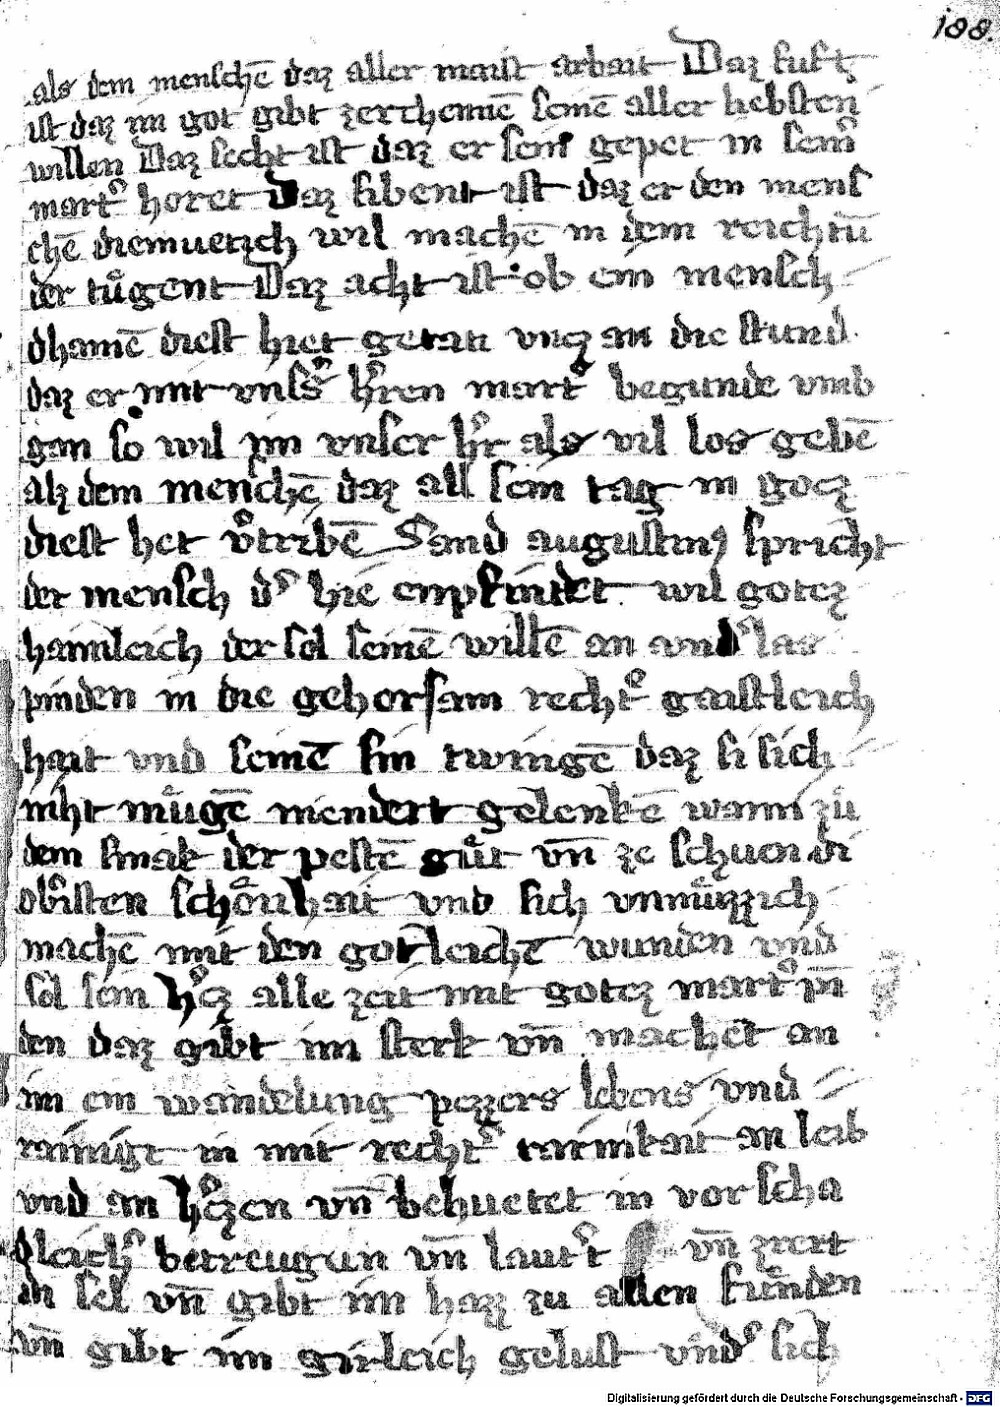 188.
als dem menschē daz aller maist arbait Daz fuft
ist daz im got gibt zerchennē seinē aller liebsten
willen Daz secht ist daz er sein gepet in seinˀ
martˀ horet Daz sibent ist daz er den mens
chē diemuetich wil machē in dem reichtū
der tůgent Daz acht ist ob ein mensch
dhainē diest hiet getan vncz an die stund
daz er mit vnsˀs hˀren martˀ begunde vmb
gan so wil im vnser hˀr als vil los gebē
alz dem menschē daz all sein tag in gocz
diest het vˀtribē Sand augustinꝰ spricht
der mensch dˀ hie enpfindet wil gotez
haimleich der sol seinē willē an vndˀlas
pinden in die gehorsam rechtˀ gaistleich
hait vnd seinē sin twingē daz si sich
niht můgē niendert gelenkē wann zů
dem smak der pestē gůt vn̄ ze schuen di
obˀisten schönhait vnd sich vnmůzzich
machē mit den gotleichē wunden vnd
sol sein hˀcz alle zeit mit gotez martˀ pin̄
den daz gibt im sterk vn̄ machet an
im ein wandelung pezzers lebens vnd
rainigt in mit rechtˀ rainikait an leib
vnd an hˀczen vn̄ behuetet in vor scha
dleichˀ betreugun vn̄ lautˀt vn̄ zirt
di sel vn̄ gibt im hazz zu allen sunden
vn̄ gibt im girleich gelust vndˀ sich
Digitalisierung gefördert durch die Deutsche Forschungsgemeinschaft - DFG